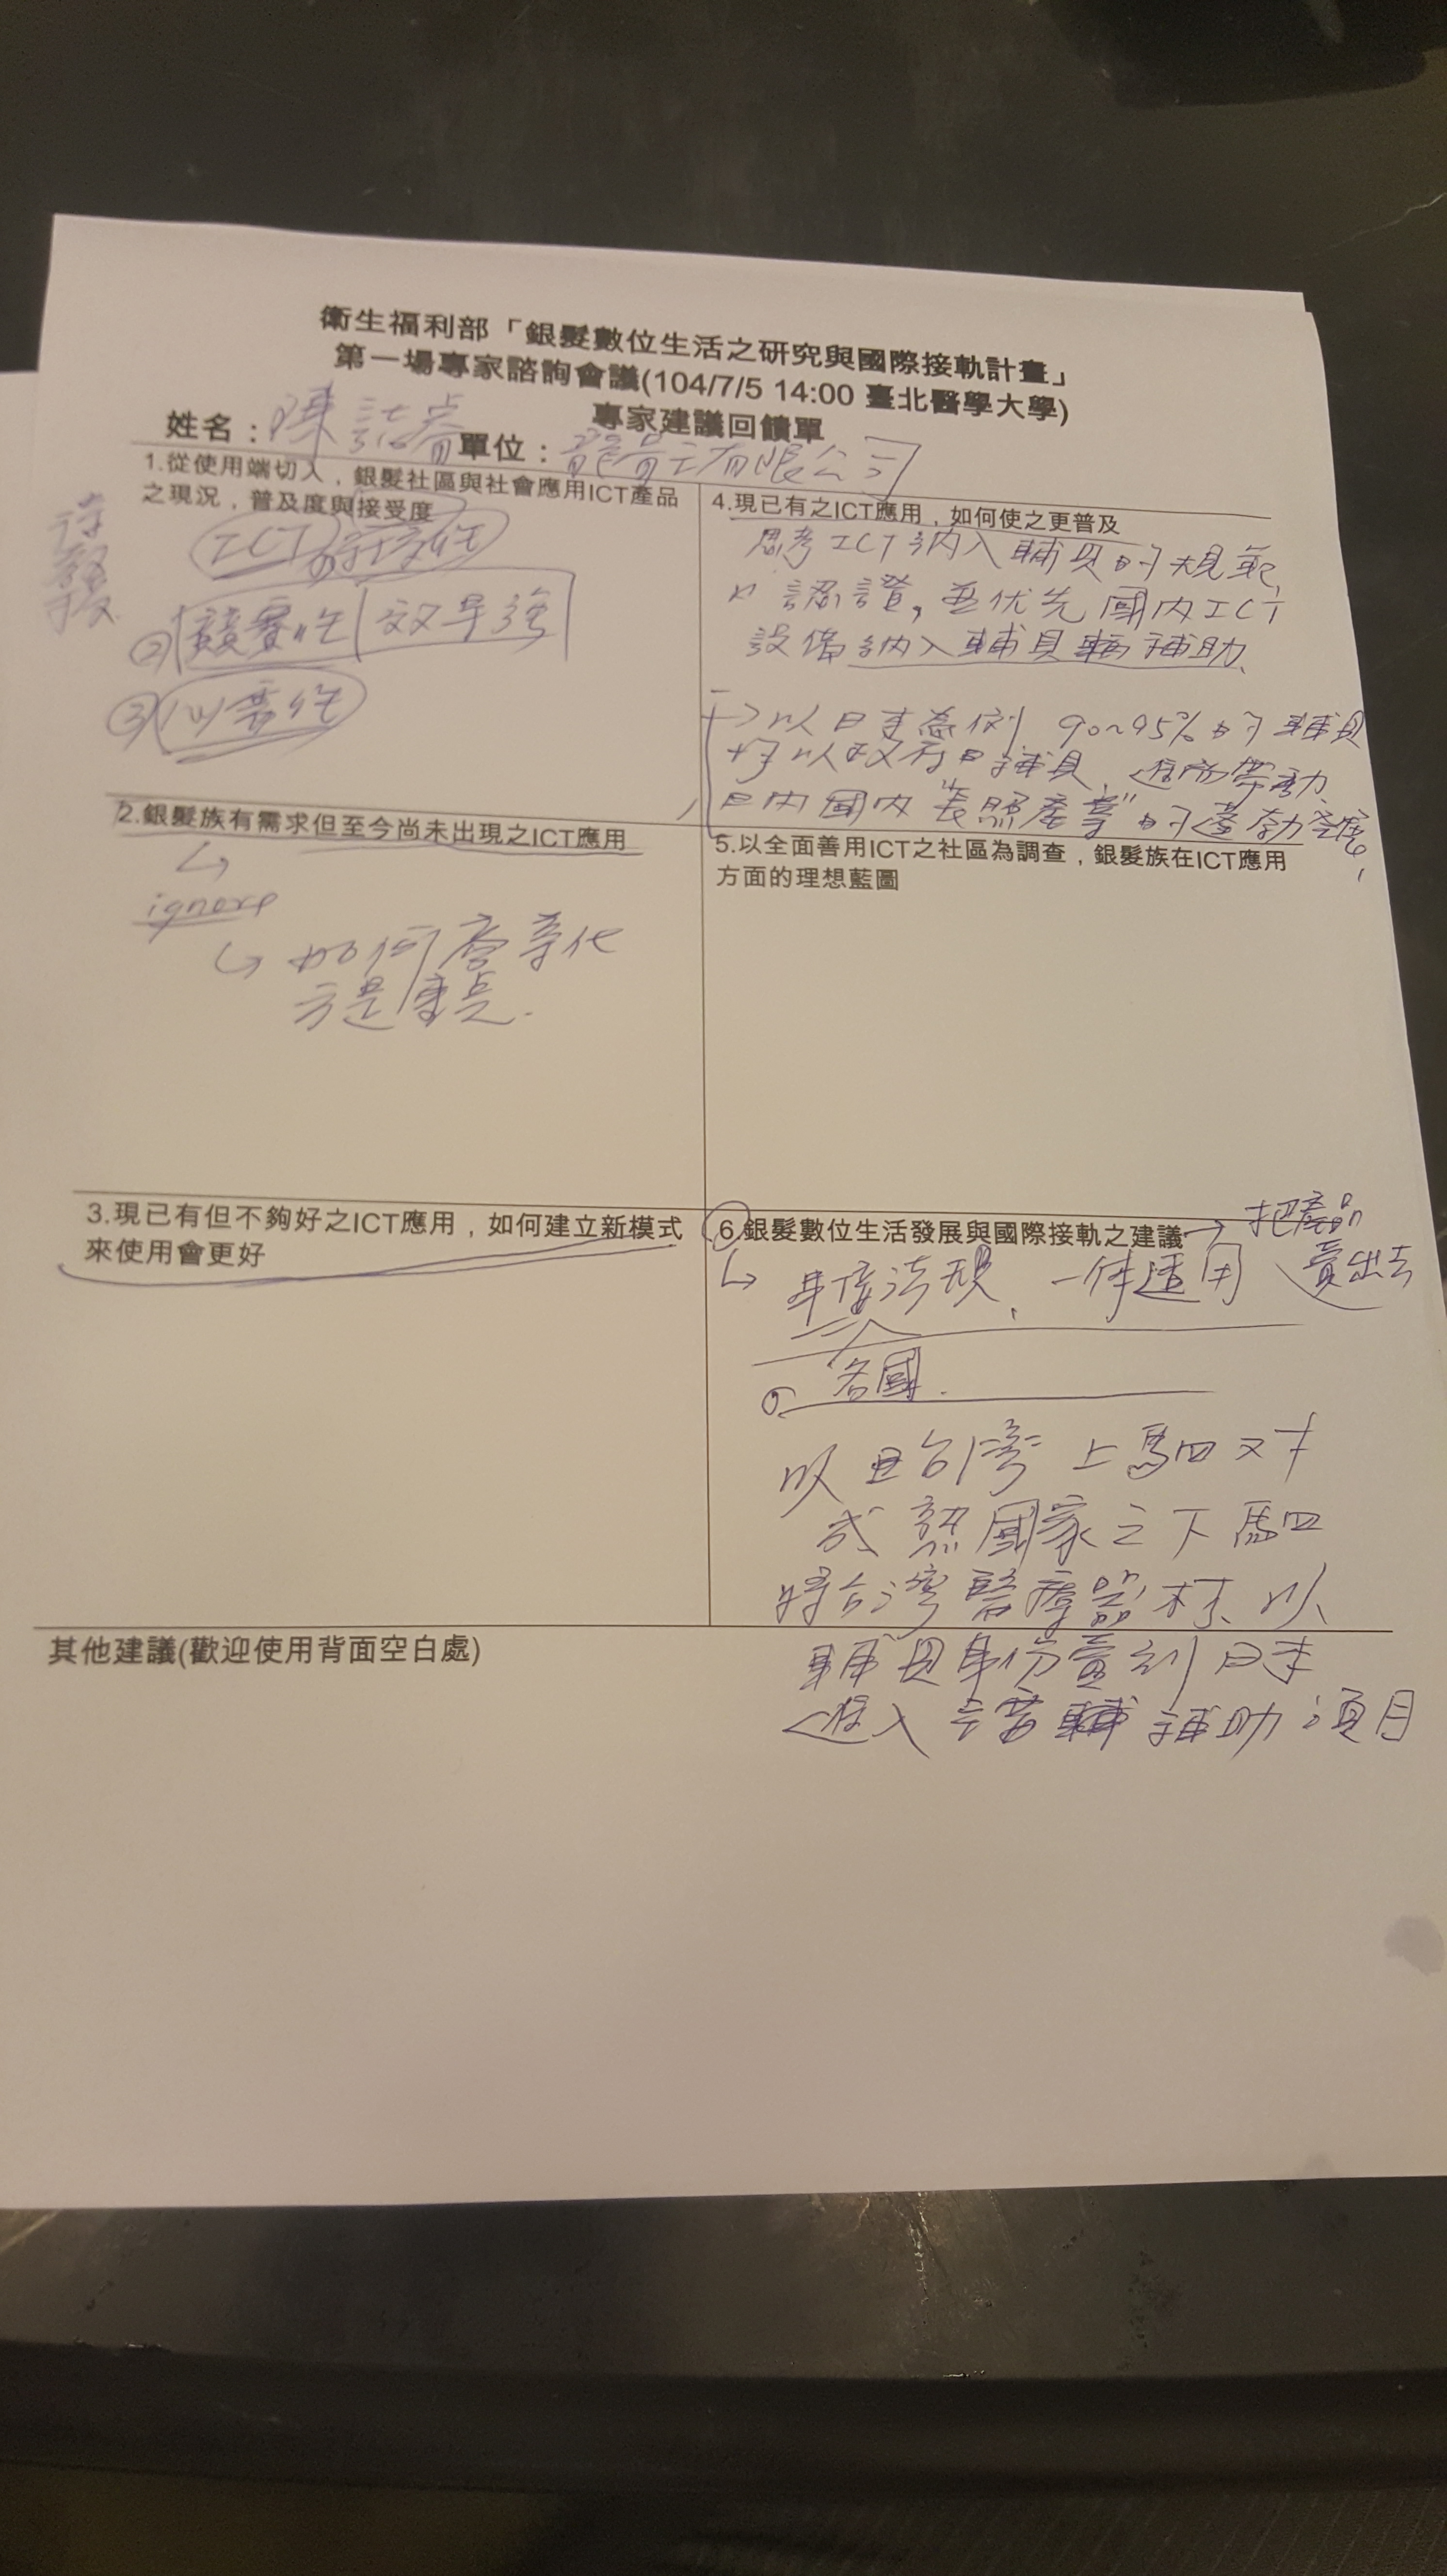 衛生福利部「銀髮數位生活之研究與國際接軌計畫」
第一場專家諮詢會議(104/7/5 14:00 臺北醫學大學)
專家建議回饋單
姓名：陳
單位：有限公司
1.從使用端切入，銀髮社區與社會應用ICT產品
之現況，普及度與接受度
ICT
② 競賽性
③
2.銀髮族有需求但至今尚未出現之ICT應用
ignore
如何
方是重點.
3.現已有但不夠好之ICT應用，如何建立新模式
來使用會更好
4.現已有之ICT應用，如何使之更普及
思考ICT納入輔具的規範
認證，並优先國內ICT
設備納入輔具輔補助、
以日本為例 90~95%的輔具
國內"長照產業"的蓬勃發展，
5.以全面善用ICT之社區為調查，銀髮族在ICT應用
方面的理想藍圖
6.銀髮數位生活發展與國際接軌之建議
把產品
賣出去
法規、一体適用
各國.
以台灣上駟对
成熟國家之下駟
將台灣醫療器材、以
輔具身份賣到日本
進入補助項目
其他建議(歡迎使用背面空白處)